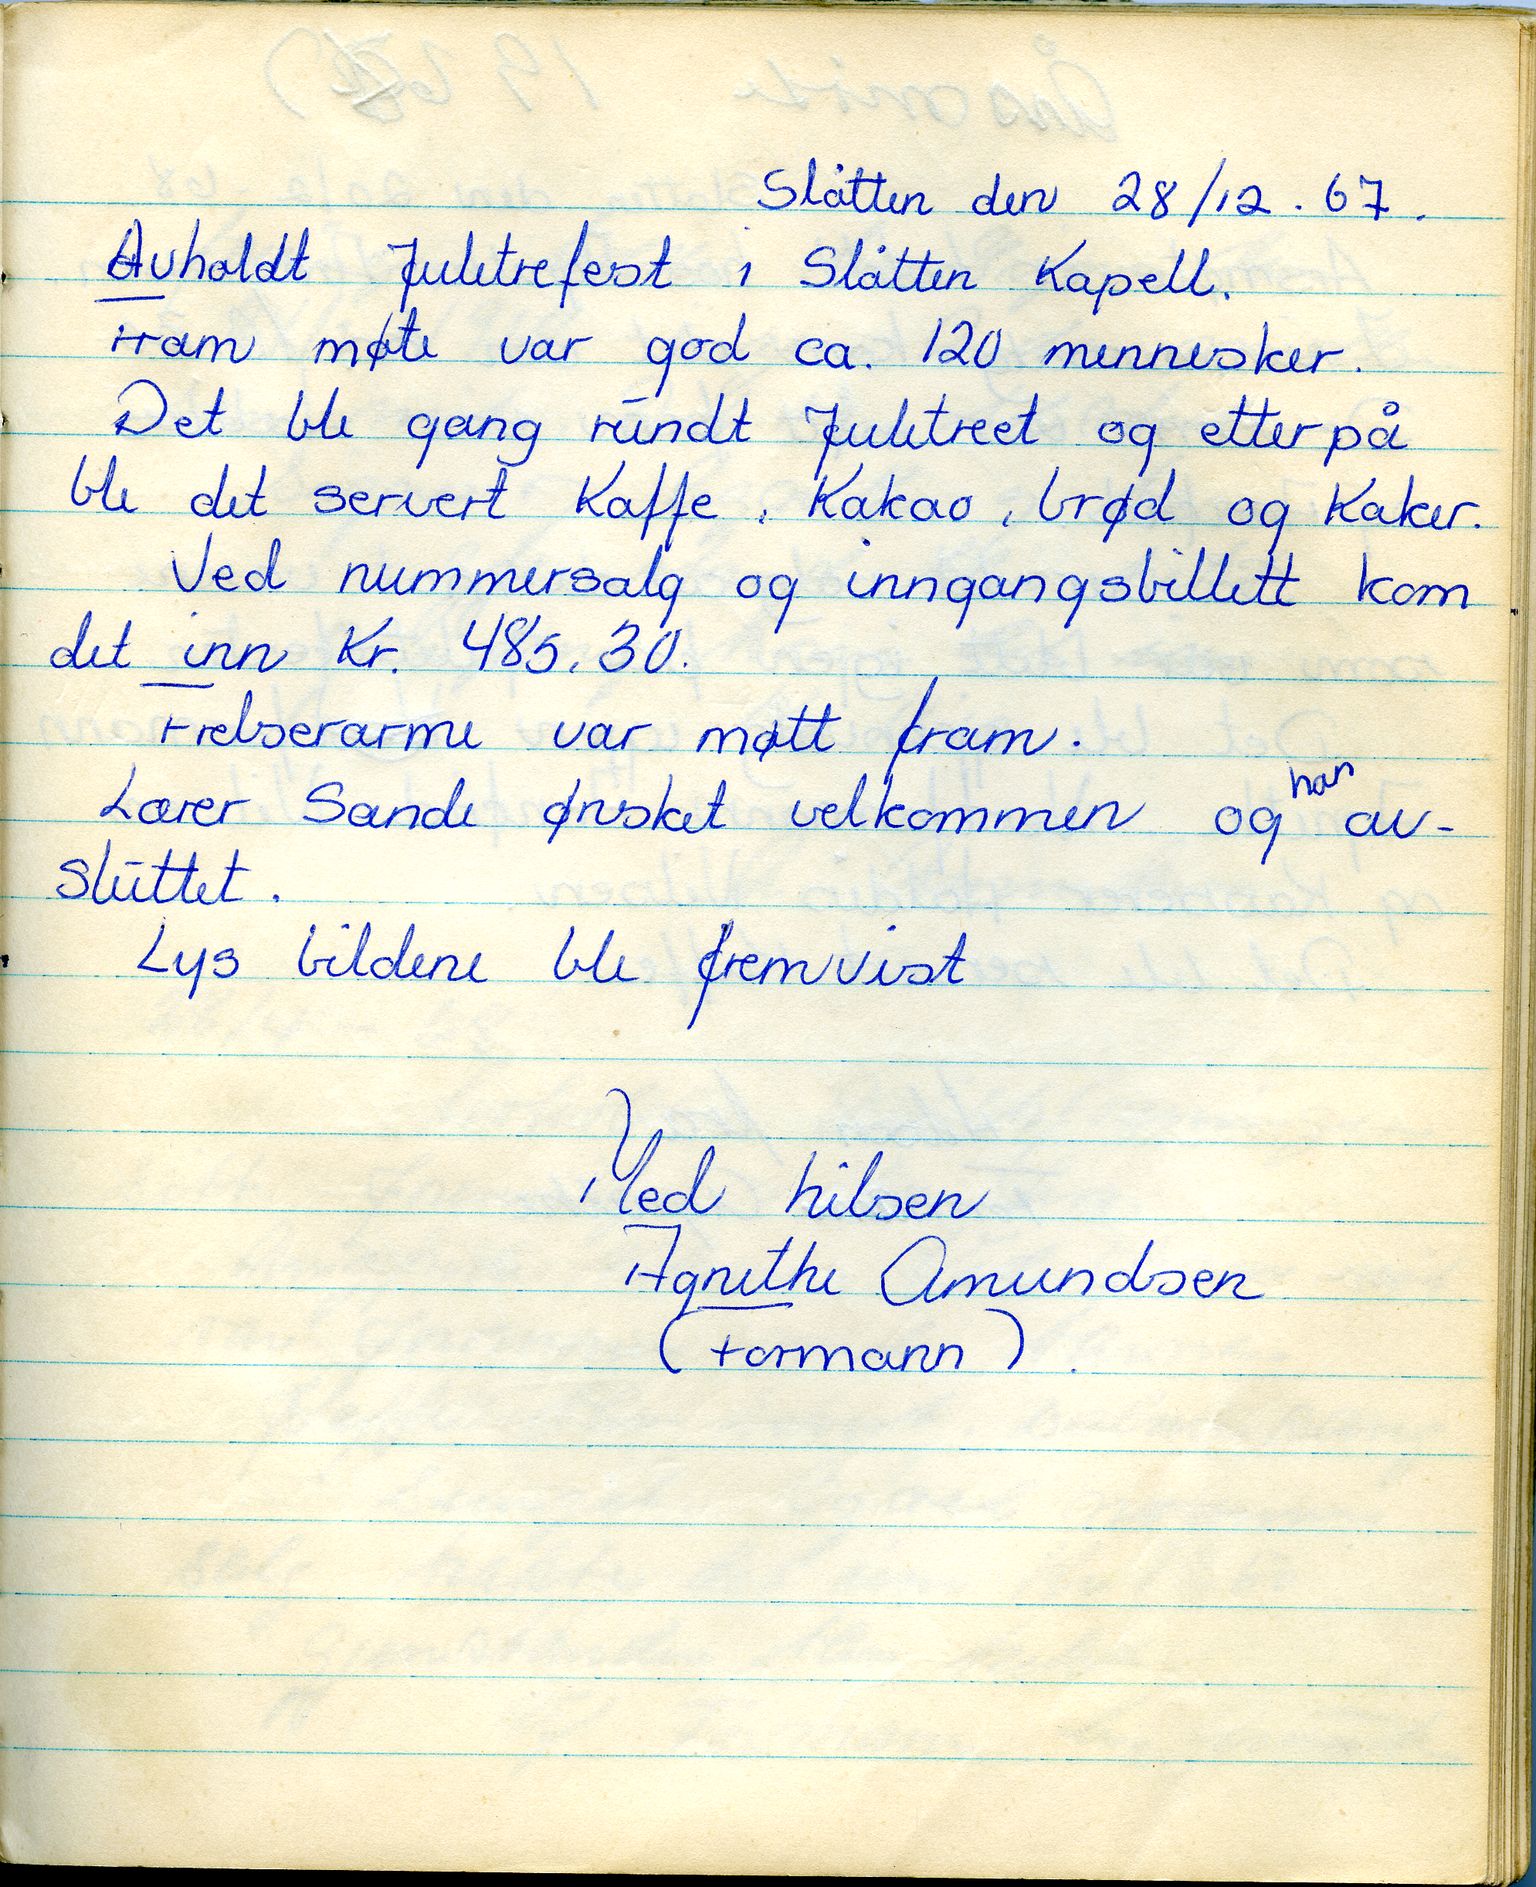 Slåtten den 28/12. 67.
Avholdt Juletrefest i Slåtten Kapell.
Fram møte var god ca. 120 mennesker.
Det ble gang rundt Juletreet og etterpå
ble det servert Kaffe, Kakao, brød og Kaker.
Ved nummersalg og inngangsbillett kom
det inn Kr. 485.30.
Frelserarme var møtt fram.
Lærer Sande ønsket velkommen og han av-
sluttet.
Lys bildene ble fremvist
Med hilsen
Agnethe Amundsen
(Formann).